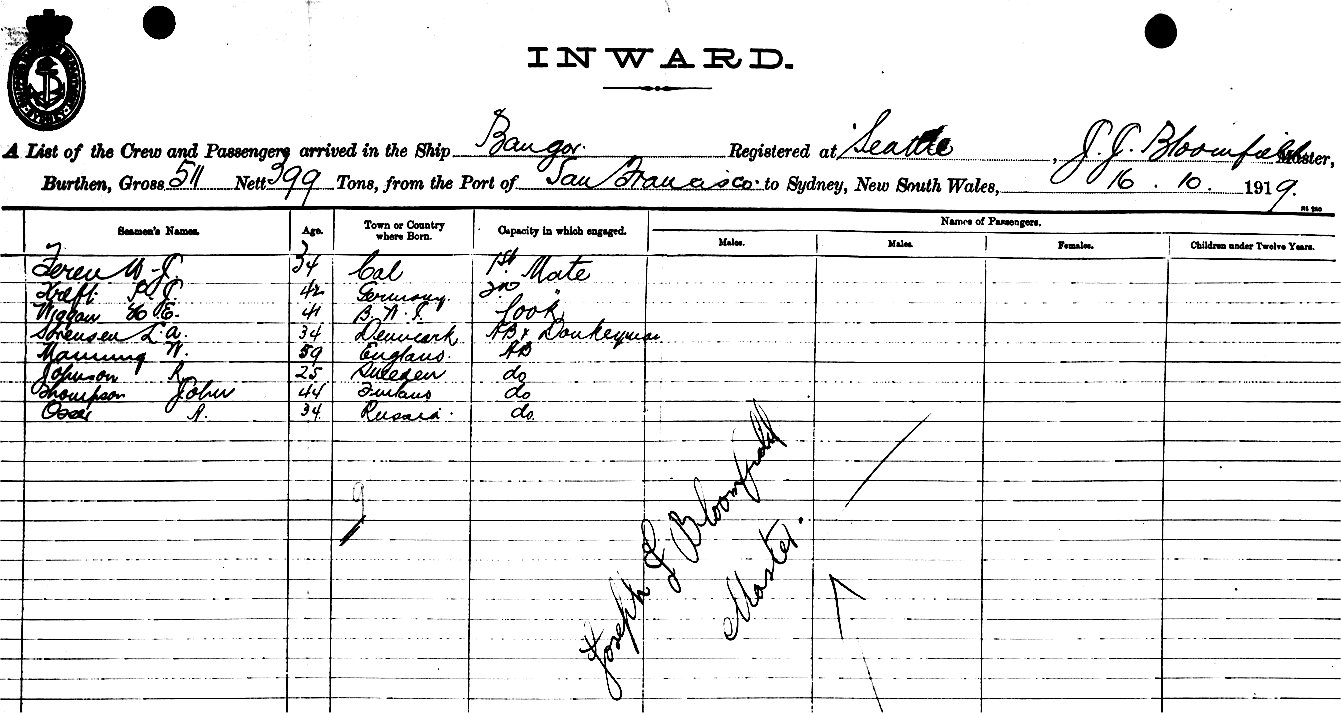 INWARD.
A List of the Crew and Passengers arrived in the Ship Bangor. Registered at Seattle, J. J. Bloomfield Master,
Burthen, Gross 511 Nett 399 Tons, from the Port of San Francisco to Sydney, New South Wales, 16. 10. 1919.
Seamen's Names. Age. Town or Country where Born. Capacity in which engaged. Names of Passengers.
Males. Males. Females. Children under Twelve Years.
W. J. 34 Cal 1st Mate
Kreft P. J. 42 Germany. 2nd "
H E. 41 B. W. I. Cook
Sorensen L A. 34 Denmark AB & Donkeyman
Manning W. 59 England. AB
Johnson R 25 Sweden do
Thompson John 44 Finland do
A. 34 Russia. do.
9
Joseph J Bloomfield
Master.